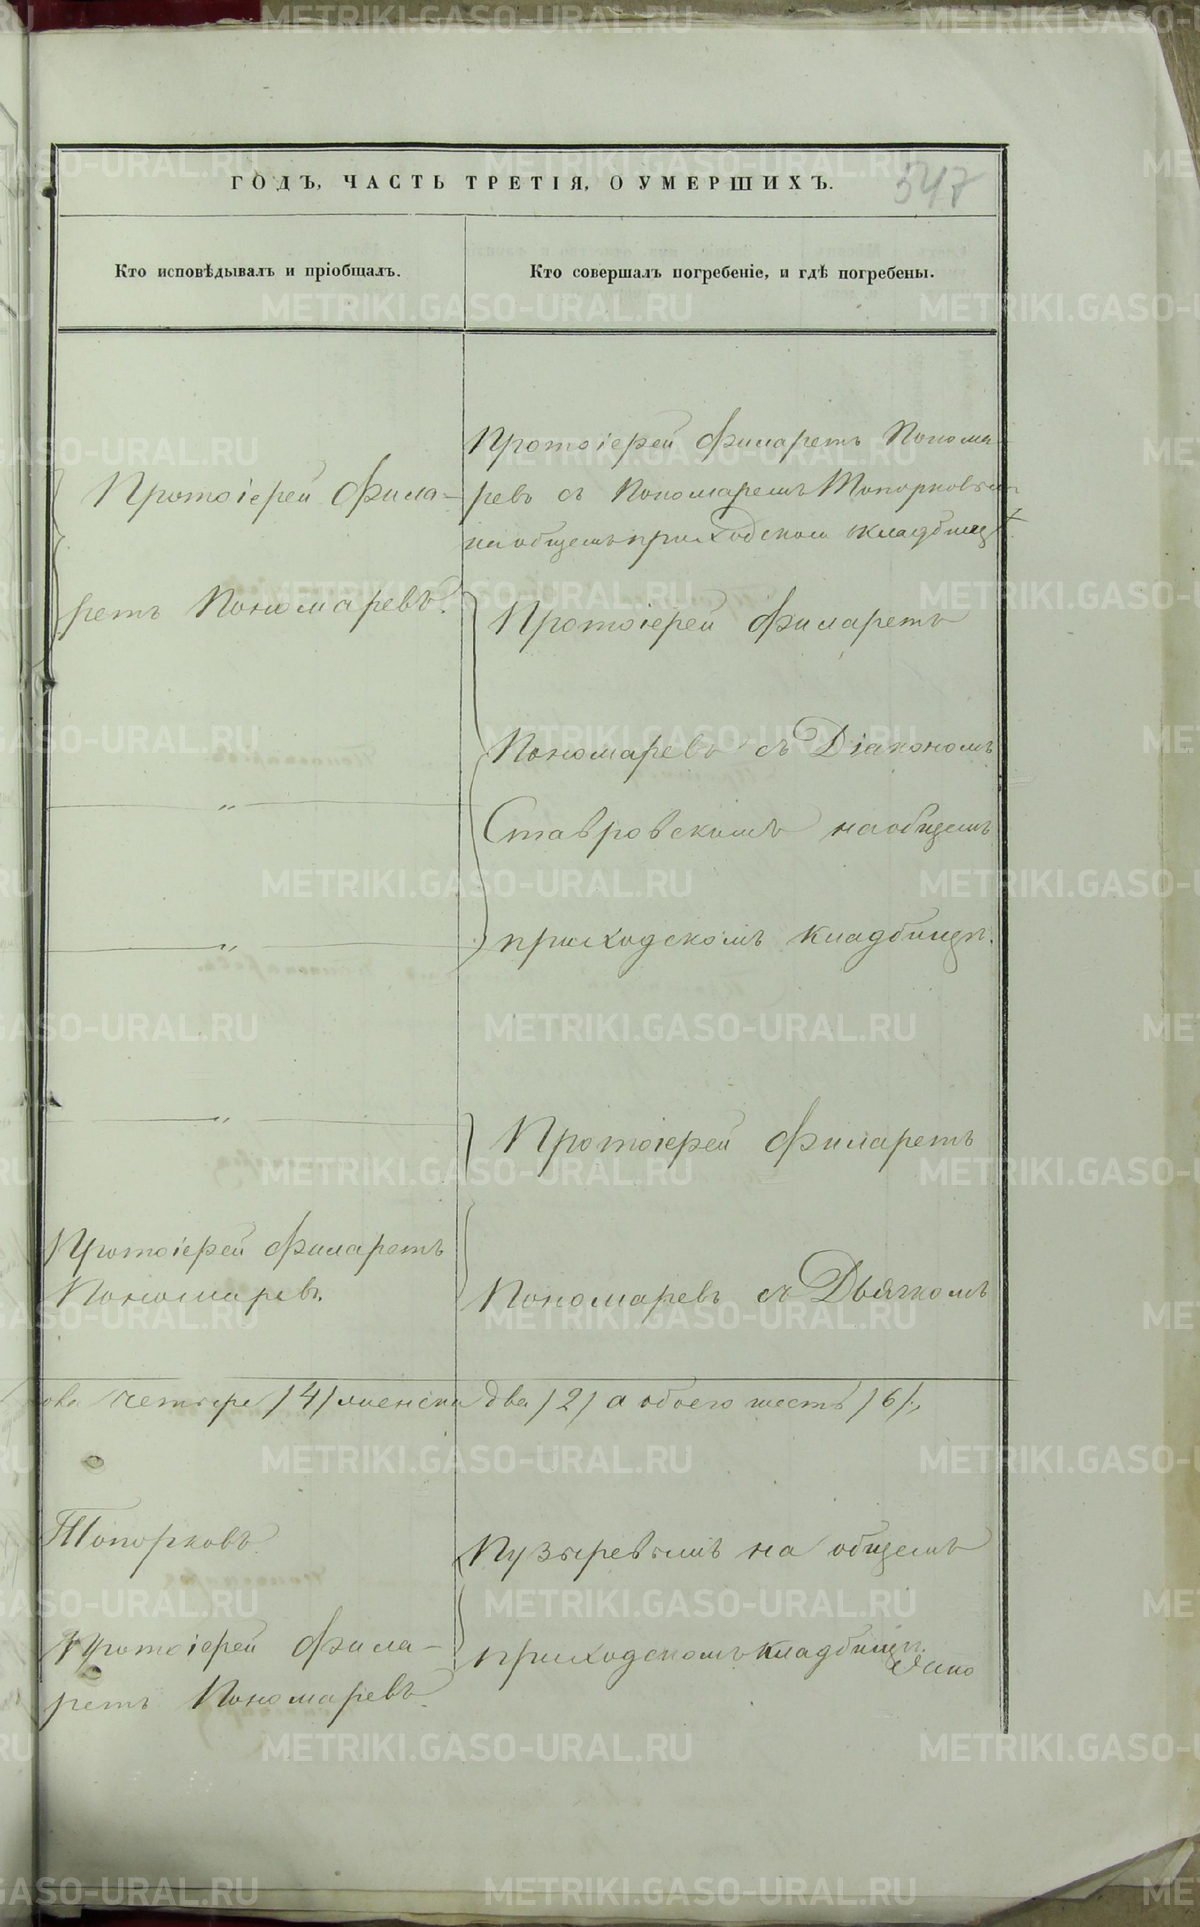 547
ГОДЪ, ЧАСТЬ ТРЕТІЯ, О УМЕРШИХЪ.
Кто исповѣдывалъ и пріобщалъ.
Кто совершалъ погребеніе, и гдѣ погребены.
Протоіерей Фила-
ретъ Пономаревъ.
Протоіерей Филаретъ Понома
ревъ съ Пономаремъ Топорковым
на общемъ приходском кладбищ
Протоіерей Филаретъ
Пономаревъ съ Діакономъ
Ставровскимъ на общемъ
приходскомъ кладбищѣ.
"
"
"
Протоіерей Филаретъ
Протоіерей Филаретъ
Пономаревъ.
Пономаревъ съ Дьячкомъ
ова четыре /4/ женска два /2/ а обоего шесть /6/.,
Топорковъ.
Пузыревымъ на общемъ
Протоіерей Фила-
ретъ Пономаревъ.
приходскомъ кладбищѣ.
METRIKI.GASO-URAL.RU